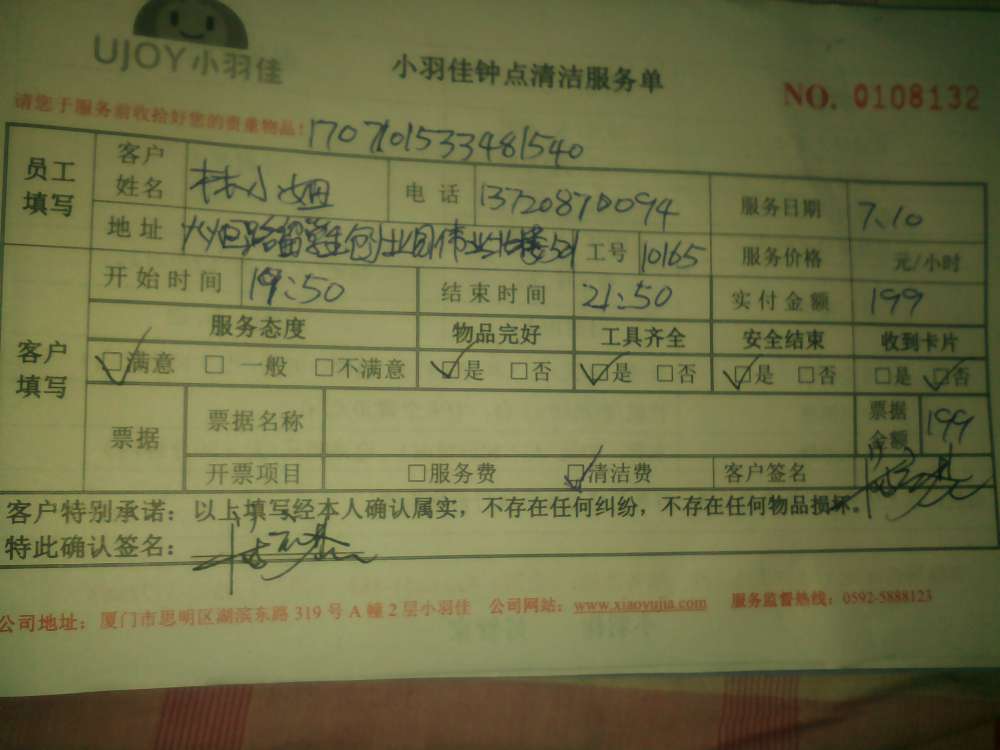 UJOY小羽佳
小羽佳钟点清洁服务单
NO. 0108132
请您于服务前收拾好您的贵重物品!
1707101533481540
员工填写 客户姓名 林小姐 电话 13720870094 服务日期 7.10
地址 火炬路留学生创业园伟业北楼501 工号 10165 服务价格 元/小时
开始时间 19:50 结束时间 21:50 实付金额 199
客户填写 服务态度 物品完好 工具齐全 安全结束 收到卡片
☑满意 □一般 □不满意 ☑是 □否 ☑是 □否 ☑是 □否 □是 ☑否
票据 票据名称 票据金额 199
开票项目 □服务费 ☑清洁费 客户签名
客户特别承诺：以上填写经本人确认属实，不存在任何纠纷，不存在任何物品损坏。
特此确认签名：
公司地址：厦门市思明区湖滨东路 319 号 A 幢 2 层小羽佳 公司网站：www.xiaoyujia.com 服务监督热线：0592-5888123